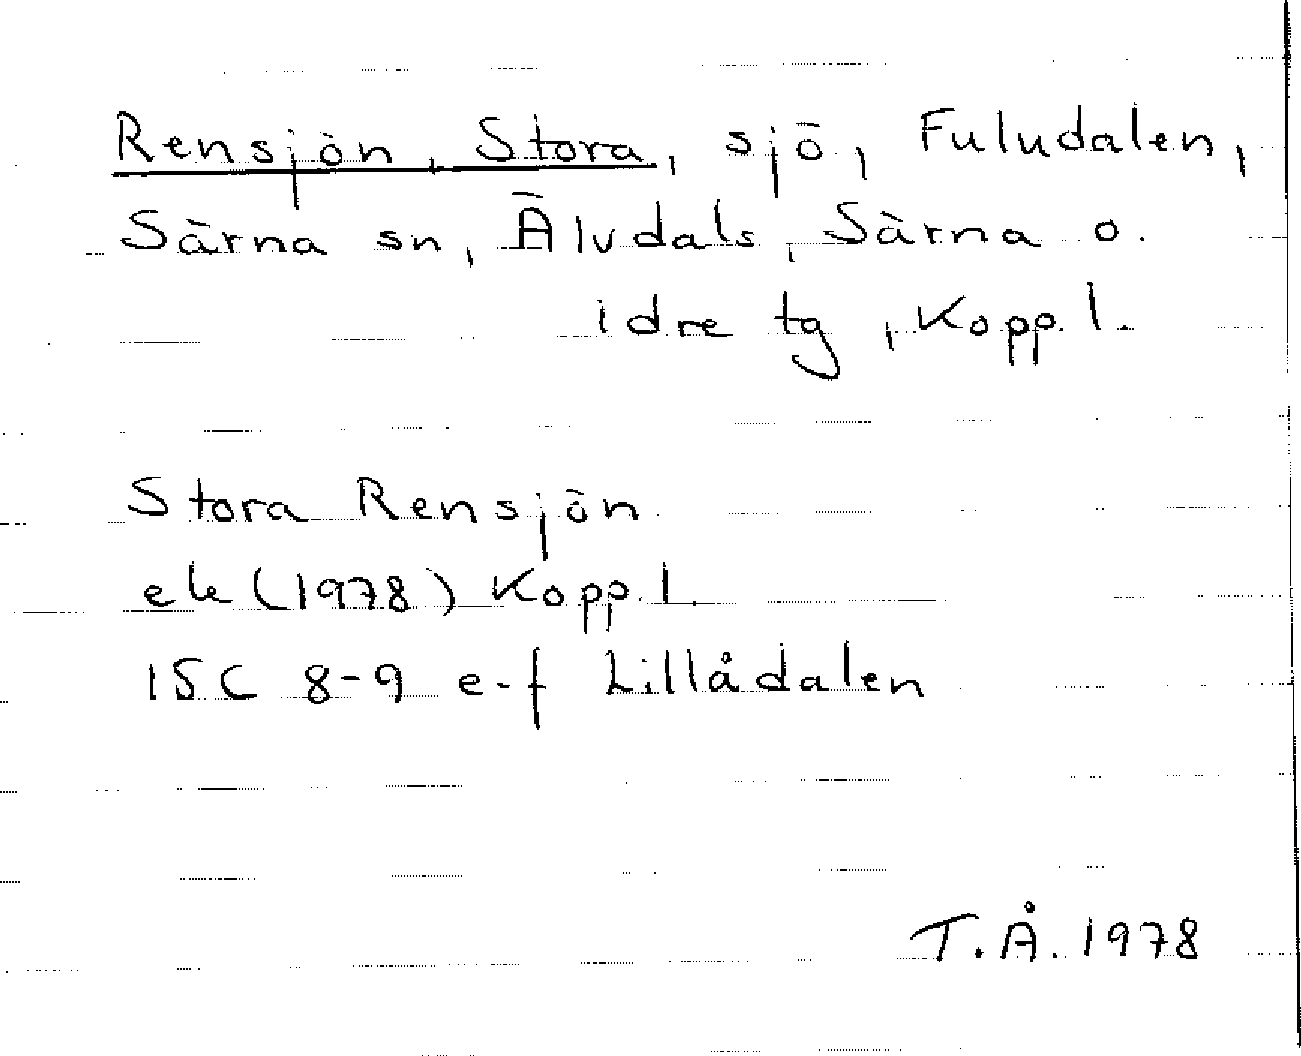 Rensjön, Stora, sjö, Fuludalen,
Särna sn, Älvdals, Särna o.
idre tg, Kopp. l.
Stora Rensjön
ek (1978) Kopp. l.
15C 8-9 e-f Lillådalen
T.Å. 1978